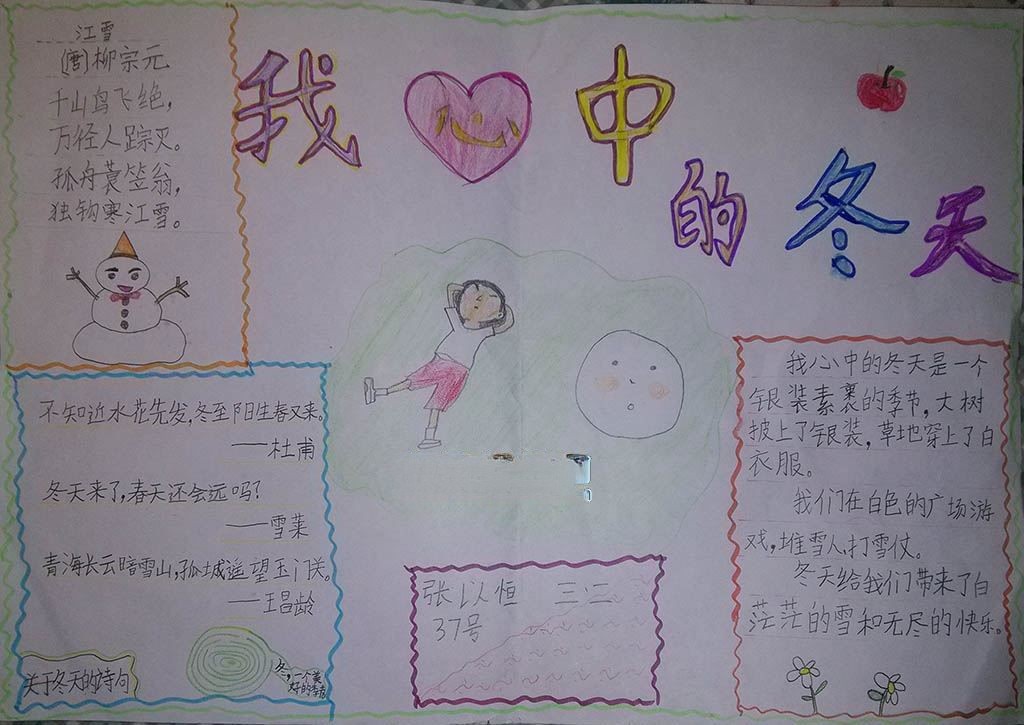 江雪
(唐)柳宗元
千山鸟飞绝，
万径人踪灭。
孤舟蓑笠翁，
独钩寒江雪。
我心中
的冬天
不知近水花先发，冬至阳生春又来。
——杜甫
冬天来了，春天还会远吗？
——雪莱
青海长云暗雪山，孤城遥望玉门关。
——王昌龄
关于冬天的诗句
冬，一个美
好的季节
张以恒 三·二
37号
我心中的冬天是一个
银装素裹的季节，大树
披上了银装，草地穿上了白
衣服。
我们在白色的广场游
戏，堆雪人，打雪仗。
冬天给我们带来了白
茫茫的雪和无尽的快乐。